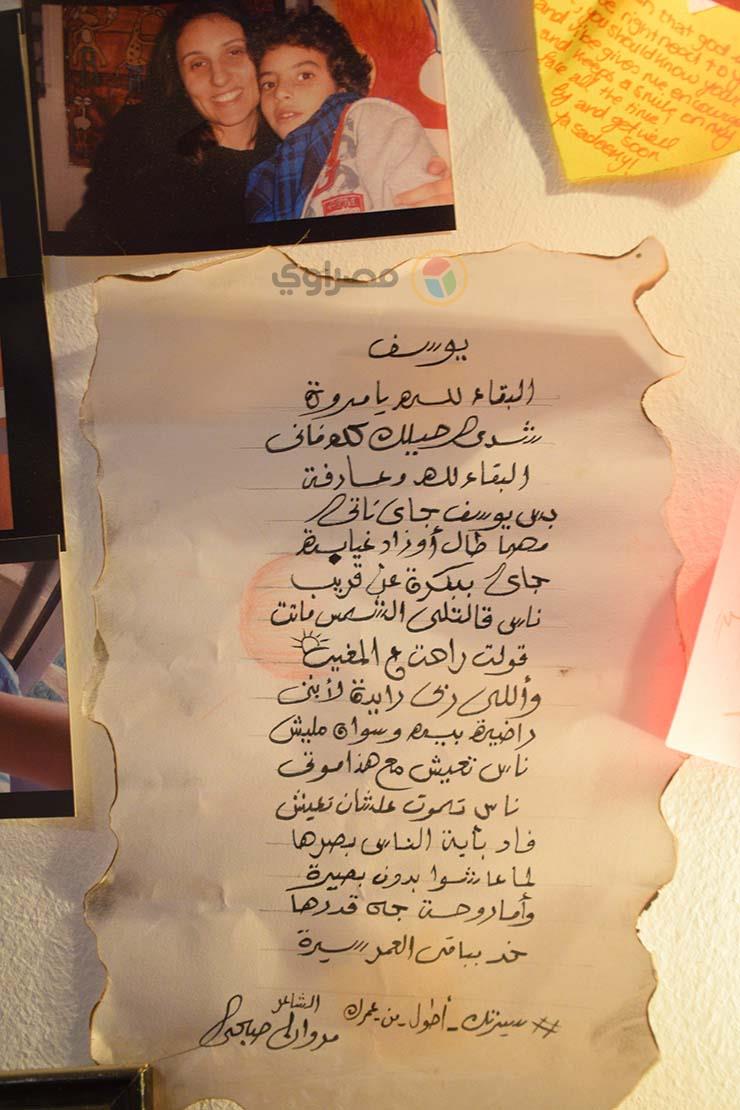 that god
be right next to you
and you should know your
life gives me encourag
and keeps a smile on my
face all the time!
by and get well
soon
ya sadeeky!
مصراوي
يوسف
البقاء لله يا مروة
شدي حيلك كله فاني
البقاء لله وعارفة
بس يوسف جاي تاني
مهما طال أو زاد غيابه
جاي بكرة عن قريب
ناس قالتلي الشمس ماتت
قولت راحت ع المغيب
واللي زي رايدة لأبني
راضية بيه وسوان مليش
ناس تعيش مع هذا موتى
ناس تموت علشان تعيش
فاد بأية الناس بصرها
لما عاشوا بدون بصيرة
وأما روحت جه قدرها
خد بباقى العمر سيرة
# سيرتك_أطول_من_عمرك
الشاعر
مروان صباحي